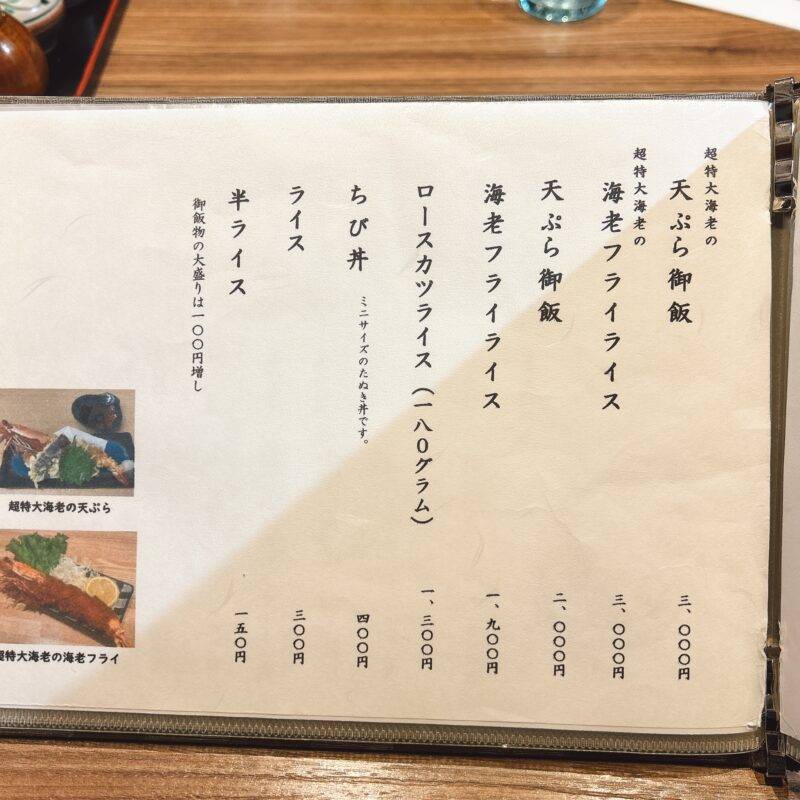 超特大海老の
天ぷら御飯 三、〇〇〇円
超特大海老の
海老フライライス 三、〇〇〇円
天ぷら御飯 二、〇〇〇円
海老フライライス 一、九〇〇円
ロースカツライス（一八〇グラム） 一、三〇〇円
ちび丼 ミニサイズのたぬき丼です。 四〇〇円
ライス 三〇〇円
半ライス 一五〇円
御飯物の大盛りは一〇〇円増し
超特大海老の天ぷら
超特大海老の海老フライ